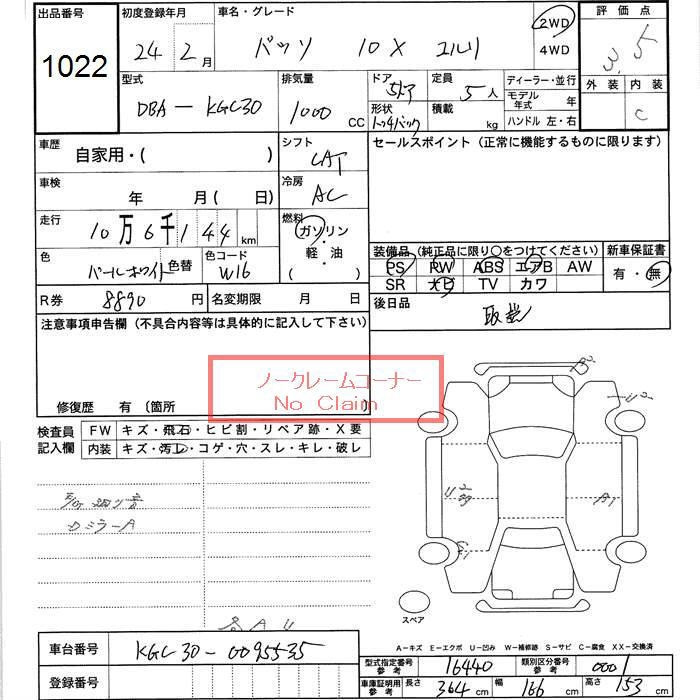 出品番号 初度登録年月 車名・グレード 評価点
1022 24年 2月 パッソ 10X 2WD 4WD 3.5
外装 内装
C
型式 排気量 ドア 定員 ディーラー・並行
DBA-KGC30 1000 CC 5ドア 5人 モデル年式 年
形状 積載 kg ハンドル 左・右
車歴 自家用・( ) シフト LAT セールスポイント (正常に機能するものに限ります)
車検 年 月 ( 日) 冷房 AC
走行 10万6千144km 燃料 ガソリン・軽油 ( )
装備品 (純正品に限り〇をつけてください) 新車保証書
色 パールホワイト 色替 色コード W16
PS PW ABS エアB AW 有・無
SR ナビ TV カワ
R券 8890円 名変期限 月 日 後日品 取説
注意事項申告欄 (不具合内容等は具体的に記入して下さい)
ノークレームコーナー
No Claim
修復歴 有 〔箇所
検査員記入欄 FW キズ・飛石・ヒビ割・リペア跡・X要
内装 キズ・汚レ・コゲ・穴・スレ・キレ・破レ
U2
A1
スペア
A-キズ E-エクボ U-凹み W-補修跡 S-サビ C-腐食 XX-交換済
車台番号 KGC30-0095535 型式指定番号 参考 16440 類別区分番号 参考 0001
登録番号 車庫証明用 参考 長さ 364cm 幅 166cm 高さ 153cm